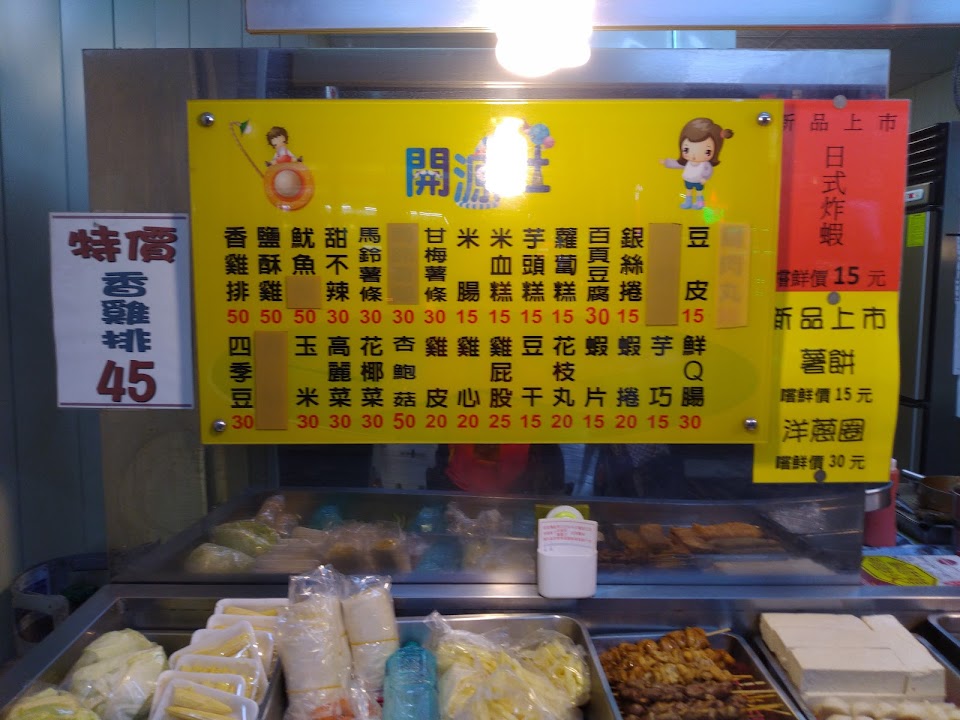 開源社
香雞排 50
鹽酥雞 50
魷魚 50
甜不辣 30
馬鈴薯條 30
30
甘梅薯條 30
米腸 15
米血糕 15
芋頭糕 15
蘿蔔糕 15
百頁豆腐 30
銀絲捲 15
豆皮 15
四季豆 30
玉米 30
高麗菜 30
花椰菜 30
杏鮑菇 50
雞皮 20
雞心 20
雞屁股 25
豆干 15
花枝丸 20
蝦片 15
蝦捲 20
芋巧 15
鮮Q腸 30
特價
香雞排
45
新品上市
日式炸蝦
嚐鮮價15元
新品上市
薯餅
嚐鮮價15元
洋蔥圈
嚐鮮價30元